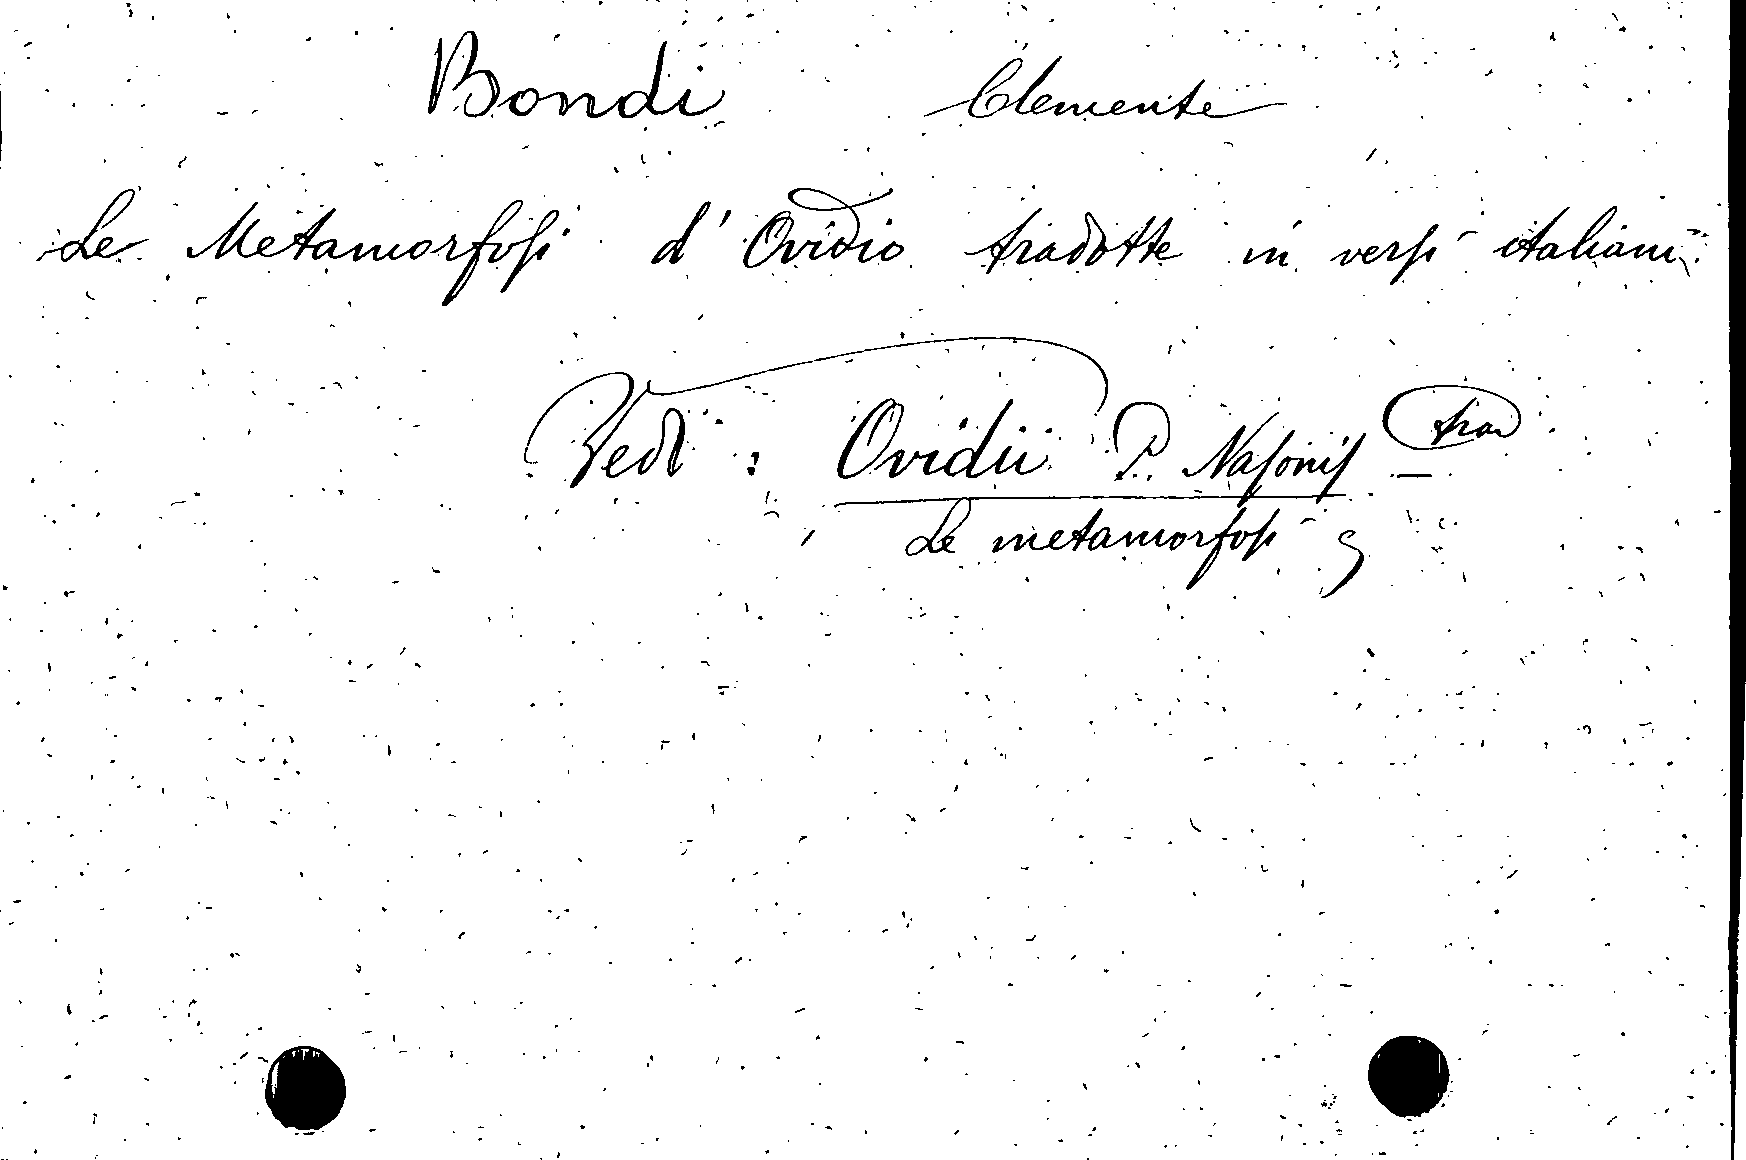 Bondi Clemente
Le Metamorfosi d' Ovidio tradotte in versi italiani.
Vedi : Ovidii P. Nasonis — trad
Le metamorfosi